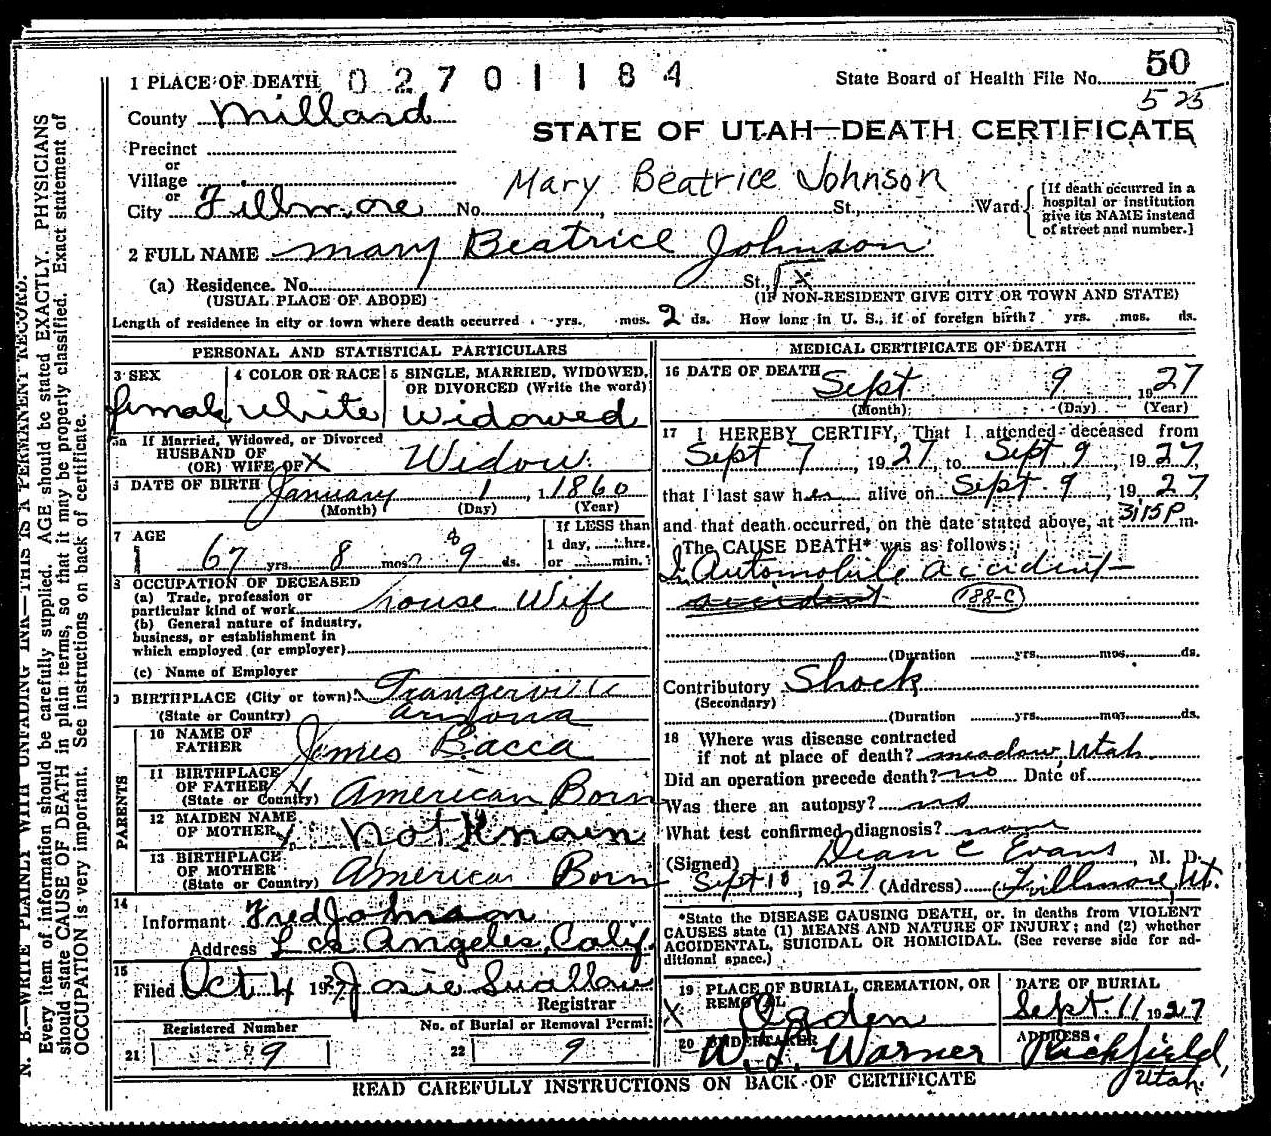 1 PLACE OF DEARTH 0 2 7 0 1 1 8 4 State Board of Health File No. 50
County Millard 525
STATE OF UTAH—DEATH CERTIFICATE
Precinct
or
Village Mary Beatrice Johnson
or
City Fillmore No. St., Ward
[If death occurred in a
hospital or institution
give its NAME instead
of street and number.]
2 FULL NAME Mary Beatrice Johnson
(a) Residence. No. St., X
(USUAL PLACE OF ABODE) (IF NON-RESIDENT GIVE CITY OR TOWN AND STATE)
Length of residence in city or town where death occurred yrs. mos. 2 ds. How long in U. S., if of foreign birth? yrs. mos. ds.
PERSONAL AND STATISTICAL PARTICULARS
3 SEX 4 COLOR OR RACE 5 SINGLE, MARRIED, WIDOWED,
OR DIVORCED (Write the word)
female White Widowed
5a If Married, Widowed, or Divorced
HUSBAND OF
(OR) WIFE OF X Widow
6 DATE OF BIRTH January 1, 1860
(Month) (Day) (Year)
7 AGE If LESS than
67 yrs. 8 mos. 8 9 ds. 1 day, hrs.
or min.
8 OCCUPATION OF DECEASED
(a) Trade, profession or
particular kind of work house Wife
(b) General nature of industry,
business, or establishment in
which employed (or employer)
(c) Name of Employer
9 BIRTHPLACE (City or town)
(State or Country) Arizona
10 NAME OF
FATHER James Bacca
PARENTS
11 BIRTHPLACE
OF FATHER
(State or Country) American Born
12 MAIDEN NAME
OF MOTHER X not Known
13 BIRTHPLACE
OF MOTHER
(State or Country) American Born
14
Informant Fred Johnson
Address Los Angeles, Calif.
15
Filed Oct 4 1927 Josie Swallow
Registrar
Registered Number No. of Burial or Removal Permit
21 9 22 9
MEDICAL CERTIFICATE OF DEATH
16 DATE OF DEATH Sept 9 1927
(Month) (Day) (Year)
17 I HEREBY CERTIFY, That I attended deceased from
Sept 7, 1927, to Sept 9, 1927
that I last saw her alive on Sept 9, 1927
and that death occurred, on the date stated above, at 3:15 P m.
The CAUSE DEATH* was as follows:
In Automobile accident
accident 188-C
(Duration yrs. mos. ds.
Contributory Shock
(Secondary)
(Duration yrs. mos. ds.
18 Where was disease contracted
if not at place of death? meadow, Utah
Did an operation precede death? no Date of
Was there an autopsy? no
What test confirmed diagnosis? none
(Signed) Dean C Evans, M. D.
Sept 10, 1927 (Address) Fillmore, Ut.
*State the DISEASE CAUSING DEATH, or, in deaths from VIOLENT
CAUSES state (1) MEANS AND NATURE OF INJURY; and (2) whether
ACCIDENTAL, SUICIDAL OR HOMICIDAL. (See reverse side for ad-
ditional space.)
19 PLACE OF BURIAL, CREMATION, OR DATE OF BURIAL
REMOVAL
X Ogden Sept. 11 1927
20 UNDERTAKER ADDRESS
W. L. Warner Richfield,
Utah.
READ CAREFULLY INSTRUCTIONS ON BACK OF CERTIFICATE
N. B.—WRITE PLAINLY WITH UNFADING INK—THIS IS A PERMANENT RECORD.
Every item of information should be carefully supplied. AGE should be stated EXACTLY. PHYSICIANS
should state CAUSE OF DEATH in plain terms, so that it may be properly classified. Exact statement of
OCCUPATION is very important. See instructions on back of certificate.